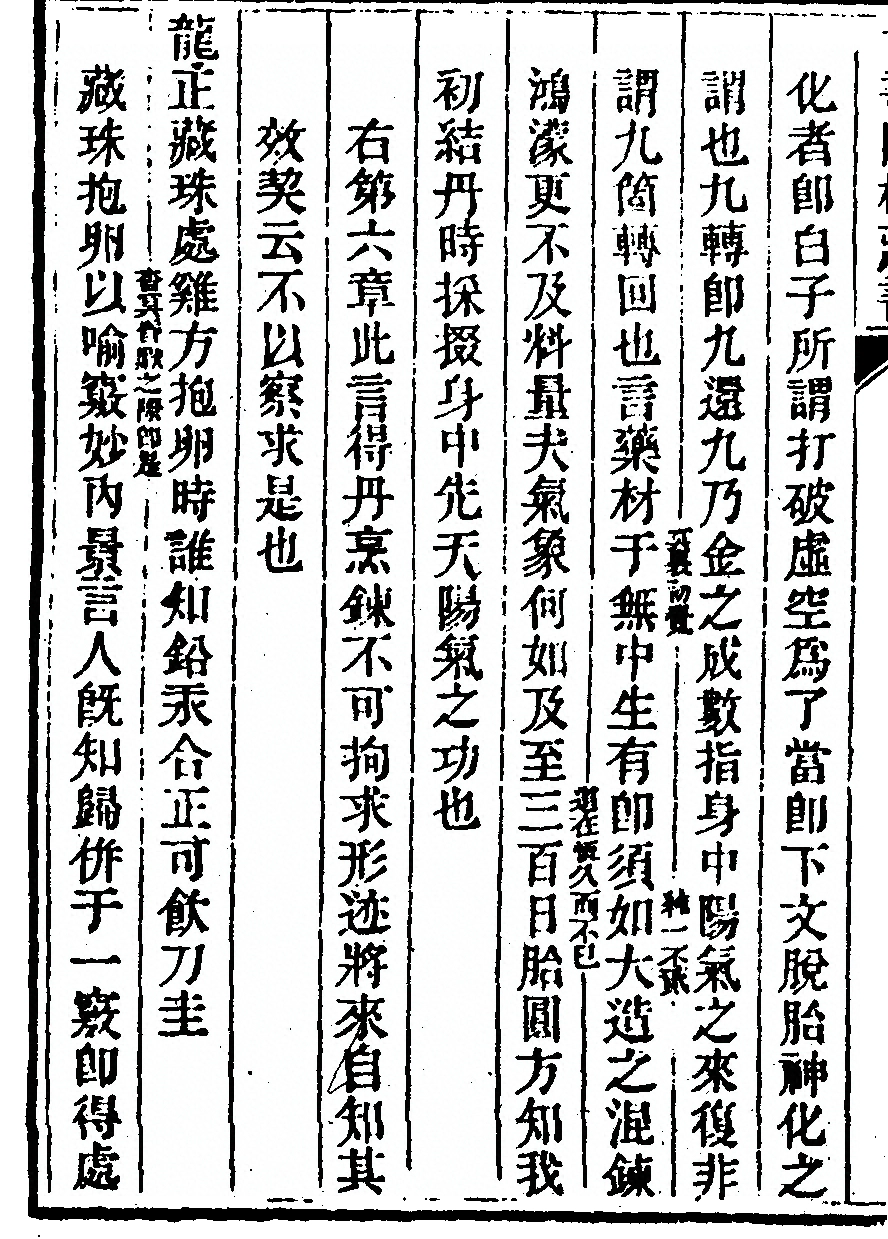 化者即白子所謂打破虛空爲了當即下文脫胎神化之
謂也九轉即九還九乃金之成數指身中陽氣之來復非
謂九箇轉回也言藥材于無中生有即須如大造之混鍊
鴻濛更不及料量夫氣象何如及至三百日胎圓方知我
初結丹時採掇身中先天陽氣之功也
右第六章此言得丹烹鍊不可拘求形迹將來自知其
效契云不以察求是也
龍正藏珠處雞方抱卵時誰知鉛汞合正可飲刀圭
藏珠抱卵以喻竅妙內景言人既知歸併于一竅即得處
一不
還在恆久而不已
之際即是